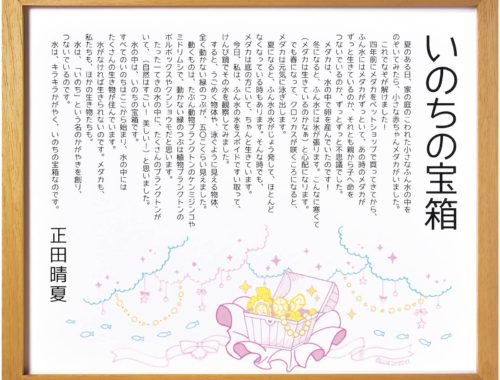 いのちの宝箱
夏のある日、家の庭のこわれた小さなふん水の中を
のぞいてみたら、小さな赤ちゃんメダカがいました。
これでなぞが解けました!
四年前にメダカをペットショップで買ってきてから、
ふん水にはメダカがずっといて、でもその時のメダカが
ずっと生きているのか、それとも親から子へ命を
つないでいるのか、ずっとずっと不思議でした。
メダカは、水の中で卵を産んでいたのです!
冬になると、ふん水には氷が張ります。こんなに寒くて
(メダカは生きているのかなぁ)と心配になります。
でも春になって、クロッカスが咲くころになると、
メダカは元気に泳ぎ出します。
夏になると、ふん水の水がじょう発して、ほとんど
なくなっている時もあります。そんな時でも、
メダカは底の方にいて、ちゃんと生きています。
今日、私は、ふん水の水をスポイトですい取って、
けんび鏡でその水を観察してみました。
すると、うごめく物体や、泳ぐように見える物体、
全く動かない緑のつぶが、五〇こくらい見えました。
動くものは、たぶん動物プランクトンのケンミジンコや
ミドリムシで、動かない緑のつぶは植物プランクトンの
ボルボックスやクンショウモだと思います。
たった一てきの水の中に、たくさんのプランクトンが
いて、(自然はすごい!美しい!)と思いました。
水の中は、いのちの宝箱です。
すべてのいのちはここから始まり、水の中には
たくさんの生き物が住んでいます。
水がなければ生きられないのです。メダカも、
私たちも、ほかの生き物たちも。
水は、「いのち」という名のかがやきを創り、
つないでいるのです。
水は、キラキラかがやく、いのちの宝箱なのです。
正田晴夏